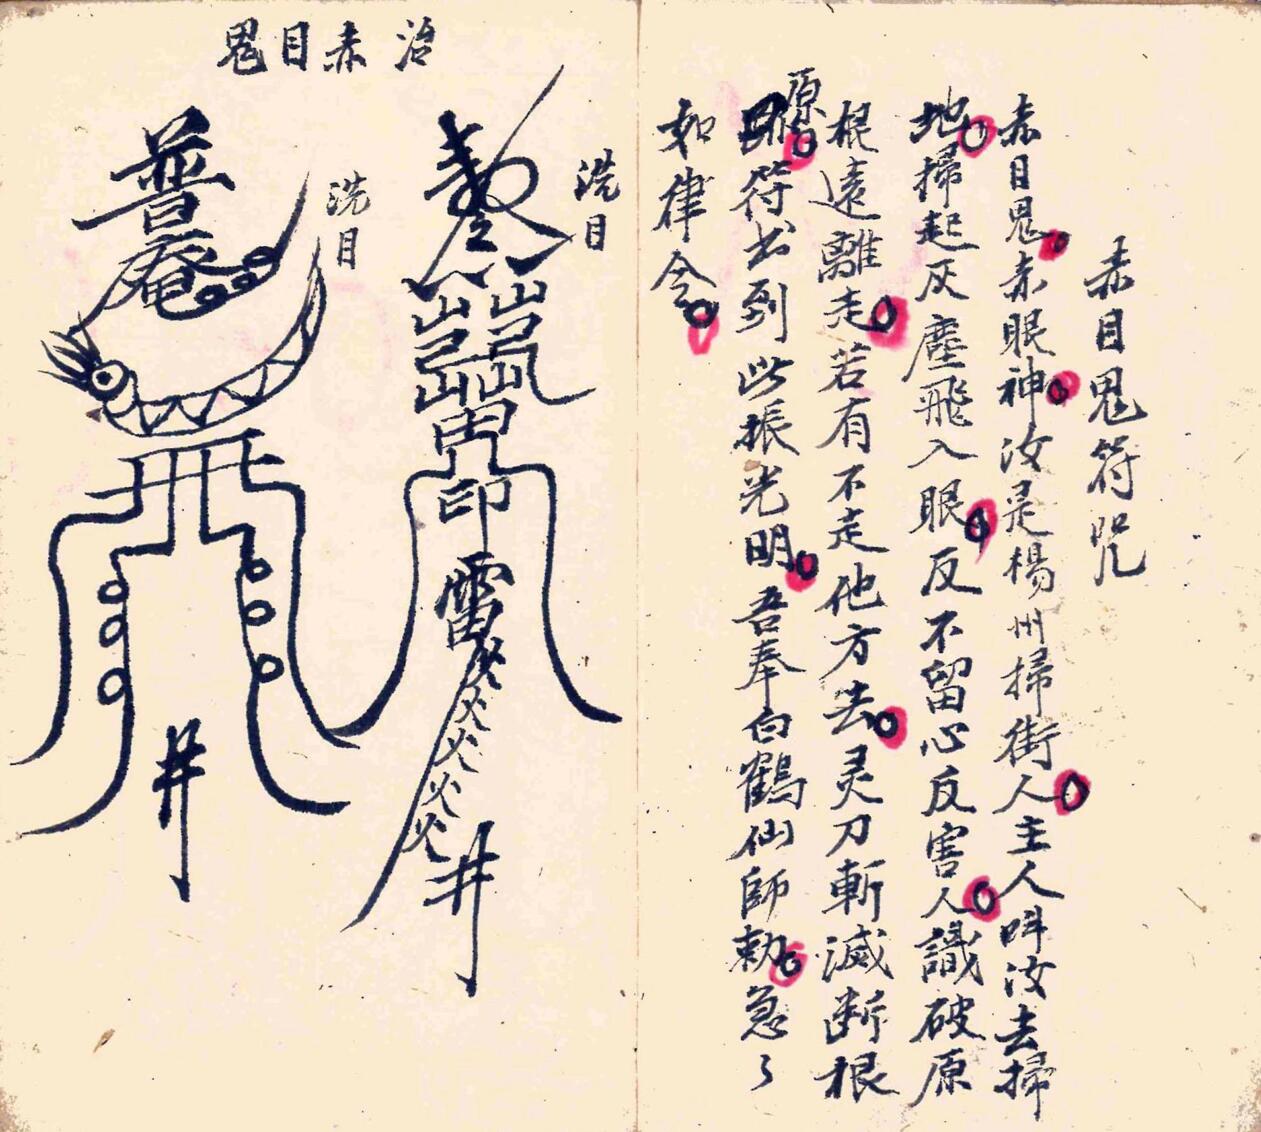 赤目鬼符咒
赤目鬼。赤眼神。汝是楊州掃街人。主人叫汝去掃
地。掃起灰塵飛入眼。反不留心反害人。識破原
根遠離走。若有不走他方去。灵刀斬滅断根
原。符書到此振光明。吾奉白鶴仙師勅。急々
如律令。
治赤目鬼
洗目
印
雷火火火火火
井
洗目
普庵
井